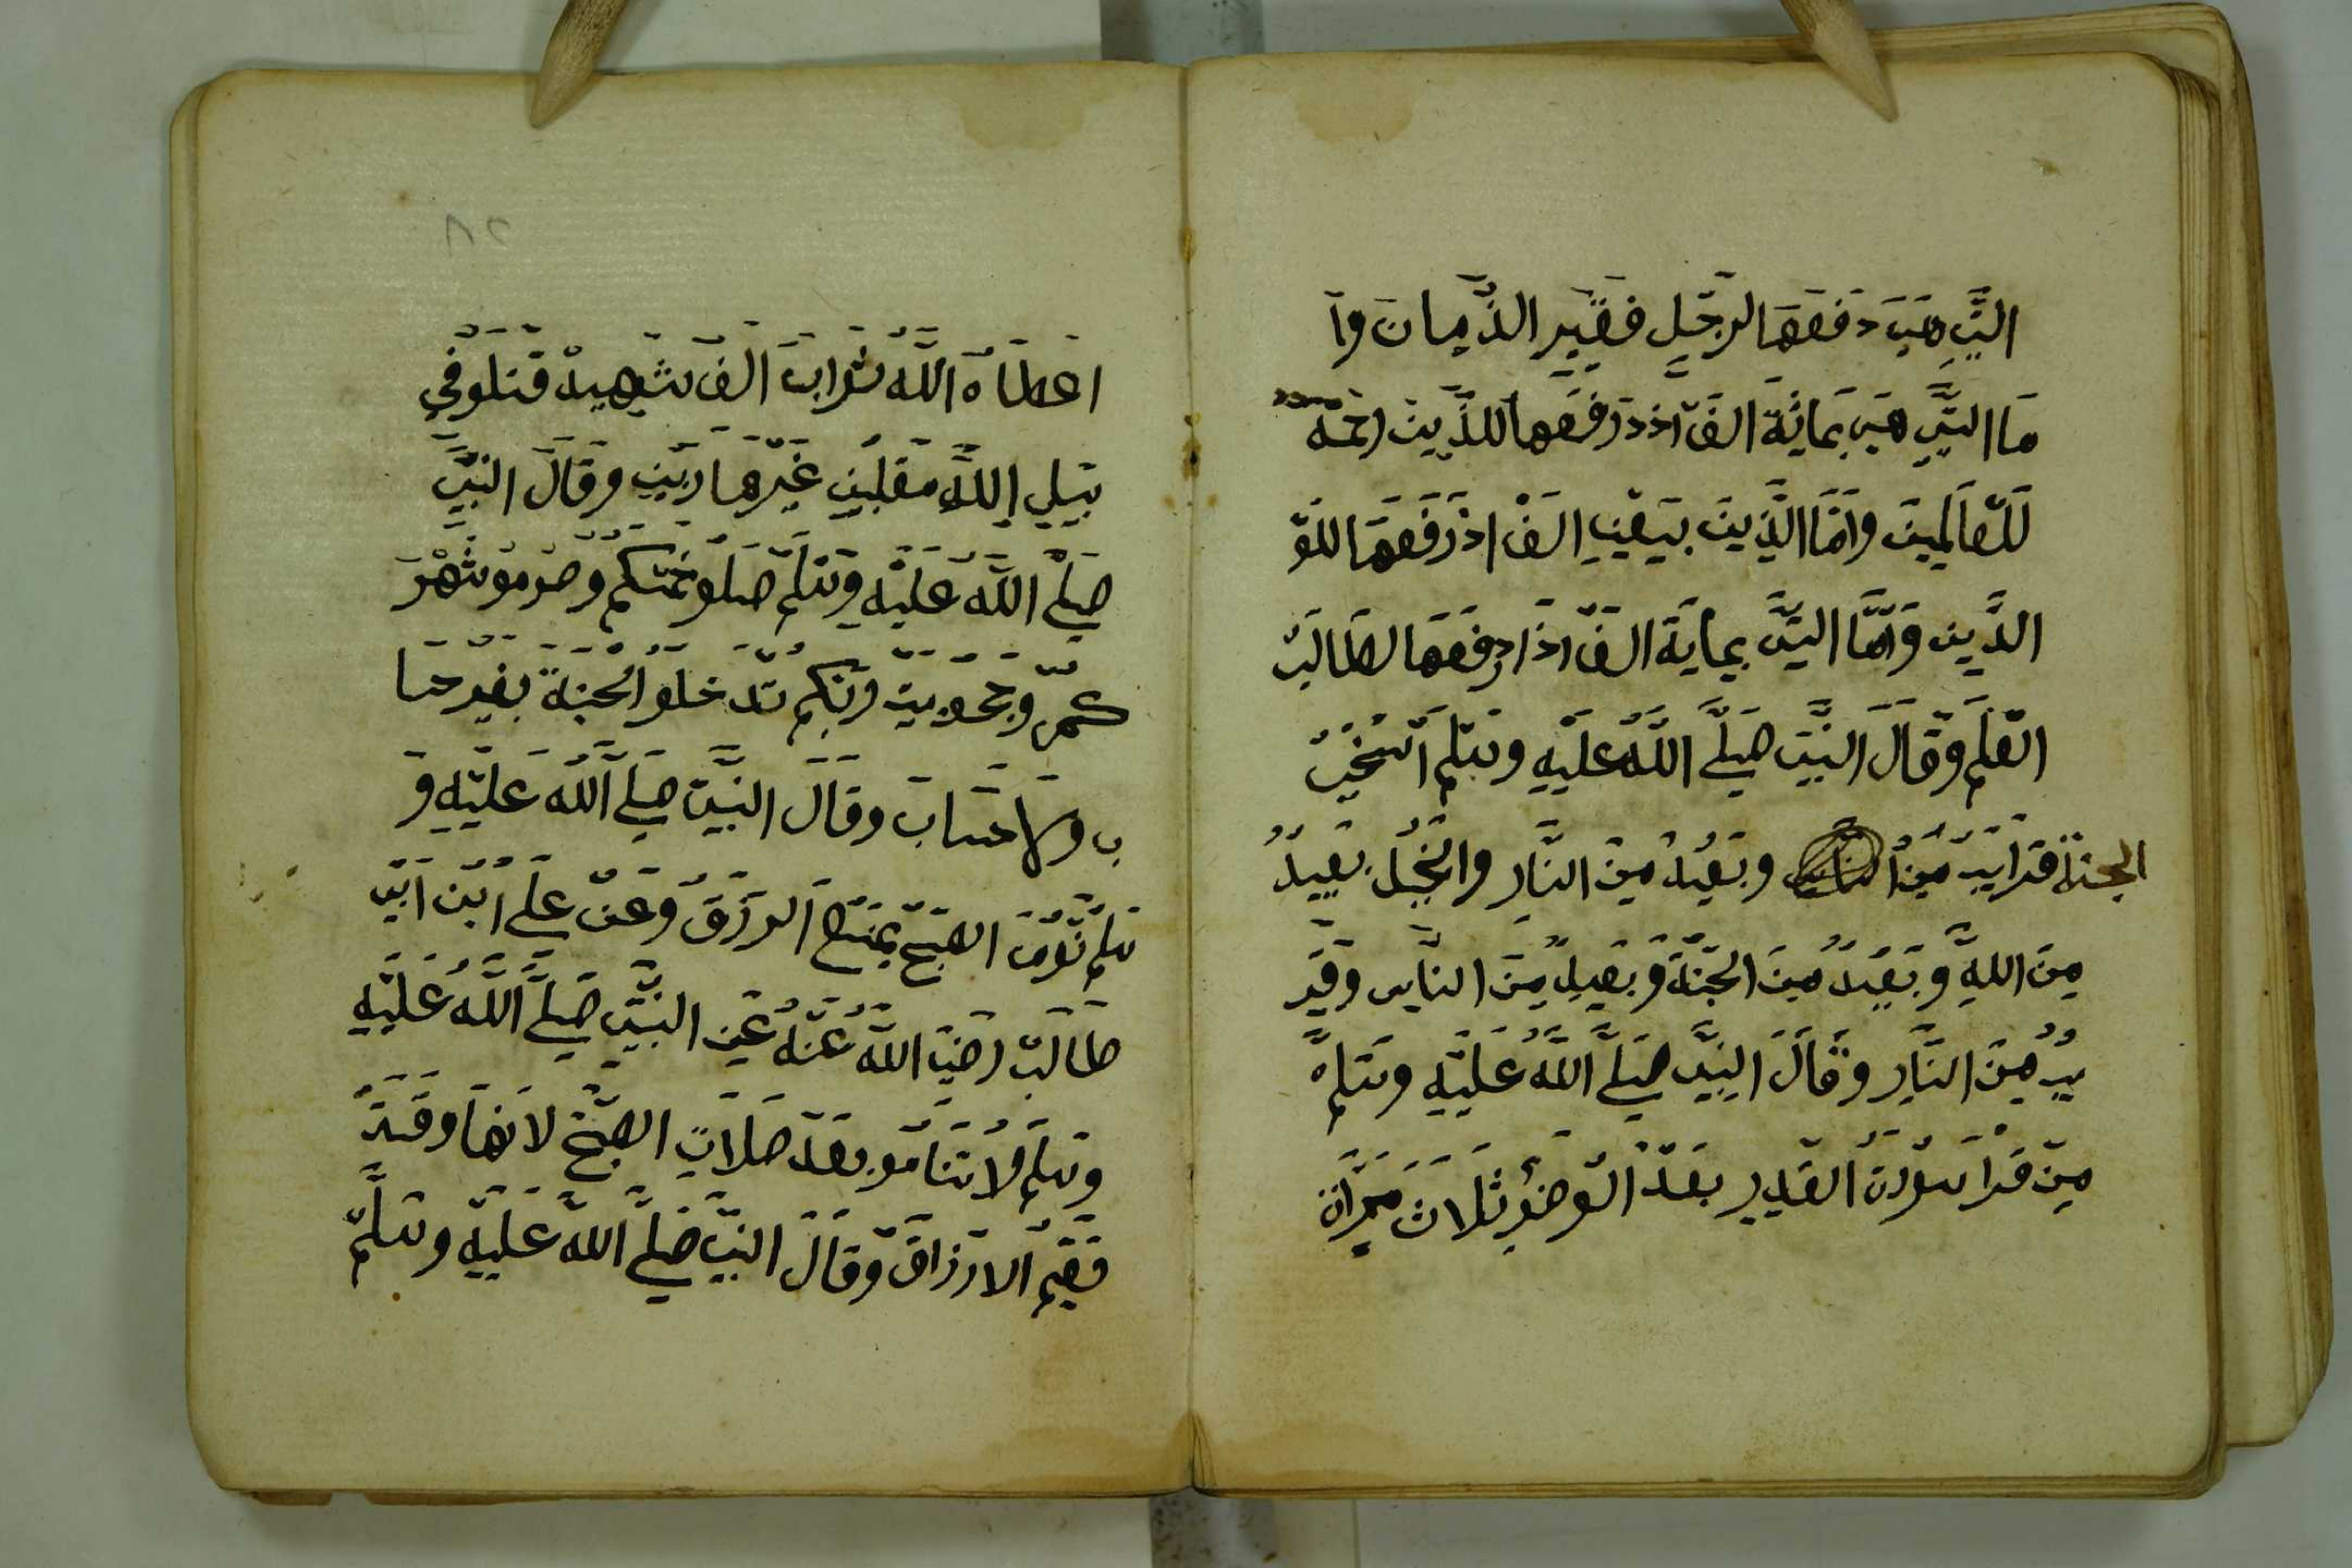 التي هي دفعها لرجل فقير الذميان وا
ما التي هي بماية الف اذ دفعها للذين رحمه
للعالمين واما الذين بيعني الف اذ دفعها للو
الدين واما التي بماية الف اذا دفعها لطالب
العلم وقال النبي صلى الله عليه وسلم السخي
الجنة قرايب من وبعيد من النار والبخيل بعيد
من الله وبعيد من الجنة وبعيد من الناس وقر
يب من النار وقال النبي صلى الله عليه وسلم
من قرا سورت القدر بعد الوضو ثلاث مران
٨٢
اعطاه الله ثواب الف شهيد قتلو في
سبيل الله مقلبين غير هاربين وقال النبي
صلى الله عليه وسلم صلو خمسكم وصومو شهر
كم وحجو بيت ربكم تدخلو الجنة بغير حسا
ب ولا عتاب وقال النبي صلى الله عليه و
سلم نوم الصبح يمنع الرزق وعن علي ابن ابي
طالب رضي الله عنه عن النبي صلى الله عليه
وسلم لا تنامو بعد صلات الصبح لانها وقت
قسم الارزاق وقال النبي صلى الله عليه وسلم